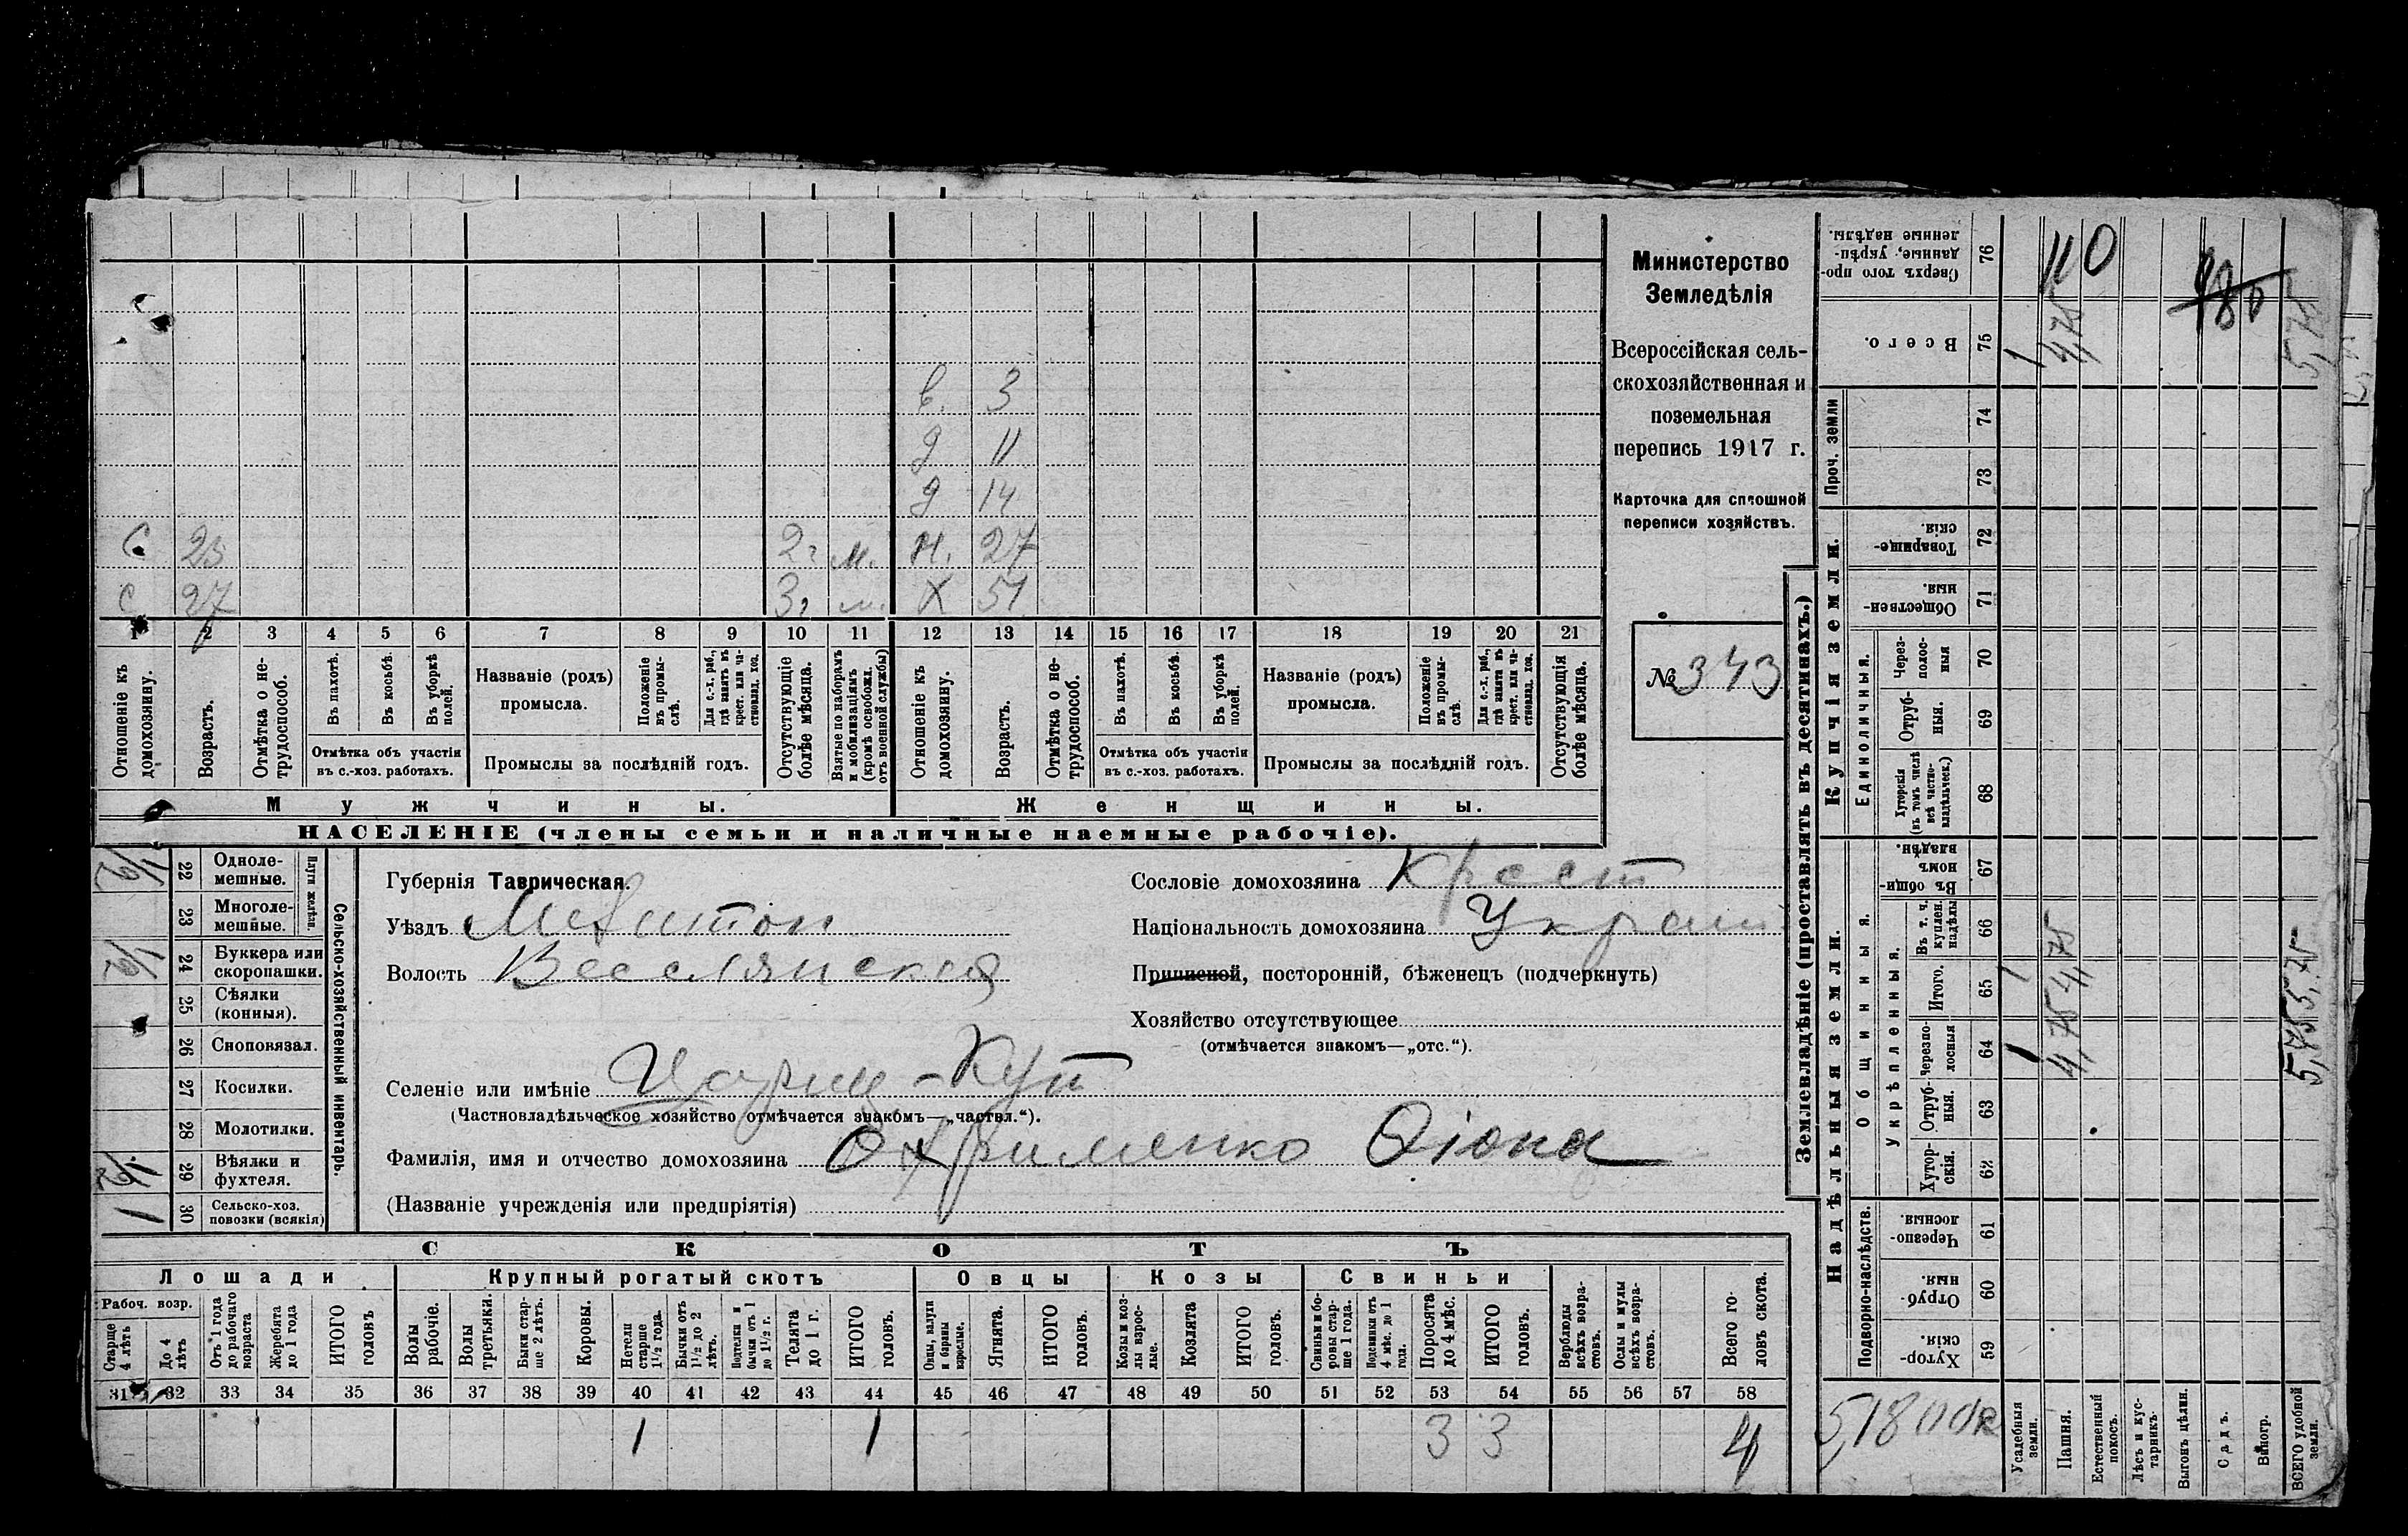 Министерство
Земледѣлія
Всероссійская сель-
скохозяйственная и
поземельная
перепись 1917 г.
Карточка для сплошной
переписи хозяйствъ.
№ 343
в. 3
д 11
д 14
С 25 2 г м. н. 27
С 27 3 г м. Х 51
1 2 3 4 5 6 7 8 9 10 11 12 13 14 15 16 17 18 19 20 21
Отношеніе къ домохозяину.
Возрастъ.
Отмѣтка о не-трудоспособ.
Въ пахотѣ.
Въ косьбѣ.
Въ уборкѣ полей.
Отмѣтка объ участіи
въ с.-хоз. работахъ.
Названіе (родъ)
промысла.
Положеніе въ промы-слѣ.
Для с.-х. раб., гдѣ занятъ въ крест. или ча-стновлад. хоз.
Промыслы за послѣдній годъ.
Отсутствующіе болѣе мѣсяца.
Взятые по наборамъ и мобилизаціямъ (кромѣ освобожд. отъ военной службы)
Отношеніе къ домохозяину.
Возрастъ.
Отмѣтка о не-трудоспособ.
Въ пахотѣ.
Въ косьбѣ.
Въ уборкѣ полей.
Отмѣтка объ участіи
въ с.-хоз. работахъ.
Названіе (родъ)
промысла.
Положеніе въ промы-слѣ.
Для с.-х. раб., гдѣ занята въ крест. или ча-стновлад. хоз.
Промыслы за послѣдній годъ.
Отсутствующія болѣе мѣсяца.
Мужчины. Женщины.
НАСЕЛЕНІЕ (члены семьи и наличные наемные рабочіе).
Сельско-хозяйственный инвентарь.
Плуги желѣзн.
1/2 22 Одноле-мешные.
23 Многоле-мешные.
1/2 24 Буккера или скоропашки.
25 Сѣялки (конныя).
26 Сноповязал.
27 Косилки.
28 Молотилки.
29 Вѣялки и фухтеля.
1 30 Сельско-хоз. повозки (всякія)
Губернія Таврическая.
Уѣздъ Мелитоп
Волость Веселянская
Селеніе или имѣніе Цариц-Кут
(Частновладѣльческое хозяйство отмѣчается знакомъ—„частвл.“).
Фамилія, имя и отчество домохозяина Охрименко Юона
(Названіе учрежденія или предпріятія)
Сословіе домохозяина Крест
Національность домохозяина Украин
Приписной, посторонній, бѣженецъ (подчеркнуть)
Хозяйство отсутствующее
(отмѣчается знакомъ—„отс.“).
СКОТЪ
Лошади Крупный рогатый скотъ Овцы Козы Свиньи
Рабоч. возр.
Старше 4 лѣтъ
До 4 лѣтъ
Отъ 1 года до рабочаго возраста
Жеребята до 1 года
ИТОГО головъ
Волы рабочіе.
Волы третьяки.
Быки стар-ше 2 лѣтъ.
Коровы.
Нетели старше 1½ года.
Бычки отъ 1½ до 2 лѣтъ.
Подтелки и бычки отъ 1 до 1½ г.
Телята до 1 г.
ИТОГО головъ.
Овцы, валухи и бараны взрослые.
Ягнята.
ИТОГО головъ.
Козы и коз-лы взрос-лые.
Козлята
ИТОГО головъ.
Свиньи и бо-ровы стар-ше 1 года.
Подсвинки отъ 4 мѣс. до 1 года.
Поросята до 4 мѣс.
ИТОГО головъ.
Верблюды всѣхъ возра-стовъ.
Ослы и мулы всѣхъ возра-стовъ.
Всего го-ловъ скота.
31 32 33 34 35 36 37 38 39 40 41 42 43 44 45 46 47 48 49 50 51 52 53 54 55 56 57 58
1 1 3 3 4
Землевладѣніе (проставлять въ десятинахъ.)
Надѣльныя земли. Купчія земли. Проч. земли
Подворно-наслѣдств.
Общинныя.
Укрѣпленныя.
Единоличныя.
59 Хутор-скія.
60 Отруб-ныя.
61 Черезпо-лосныя.
62 Хутор-скія.
63 Отруб-ныя.
64 Черезпо-лосныя
65 Итого.
66 Въ т. ч. куплен. надѣлы
67 Въ общин-номъ владѣн.
68 Хуторскія (въ томъ числѣ всѣ частно-владѣльческ.)
69 Отруб-ныя.
70 Через-полос-ныя
71 Обществен-ныя.
72 Товарище-скія.
73
74
75 Всего.
76 Сверхъ того про-данные, укрѣп-ленные надѣлы.
Усадебныя земли. 1 1 1
Пашня. 4,75 4,75 4,75 110
Естественный покосъ.
Лѣсъ и кус-тарникъ.
Выгонъ цѣлин.
Садъ.
Виногр.
ВСЕГО удобной земли. 5,75 5,75 5,75